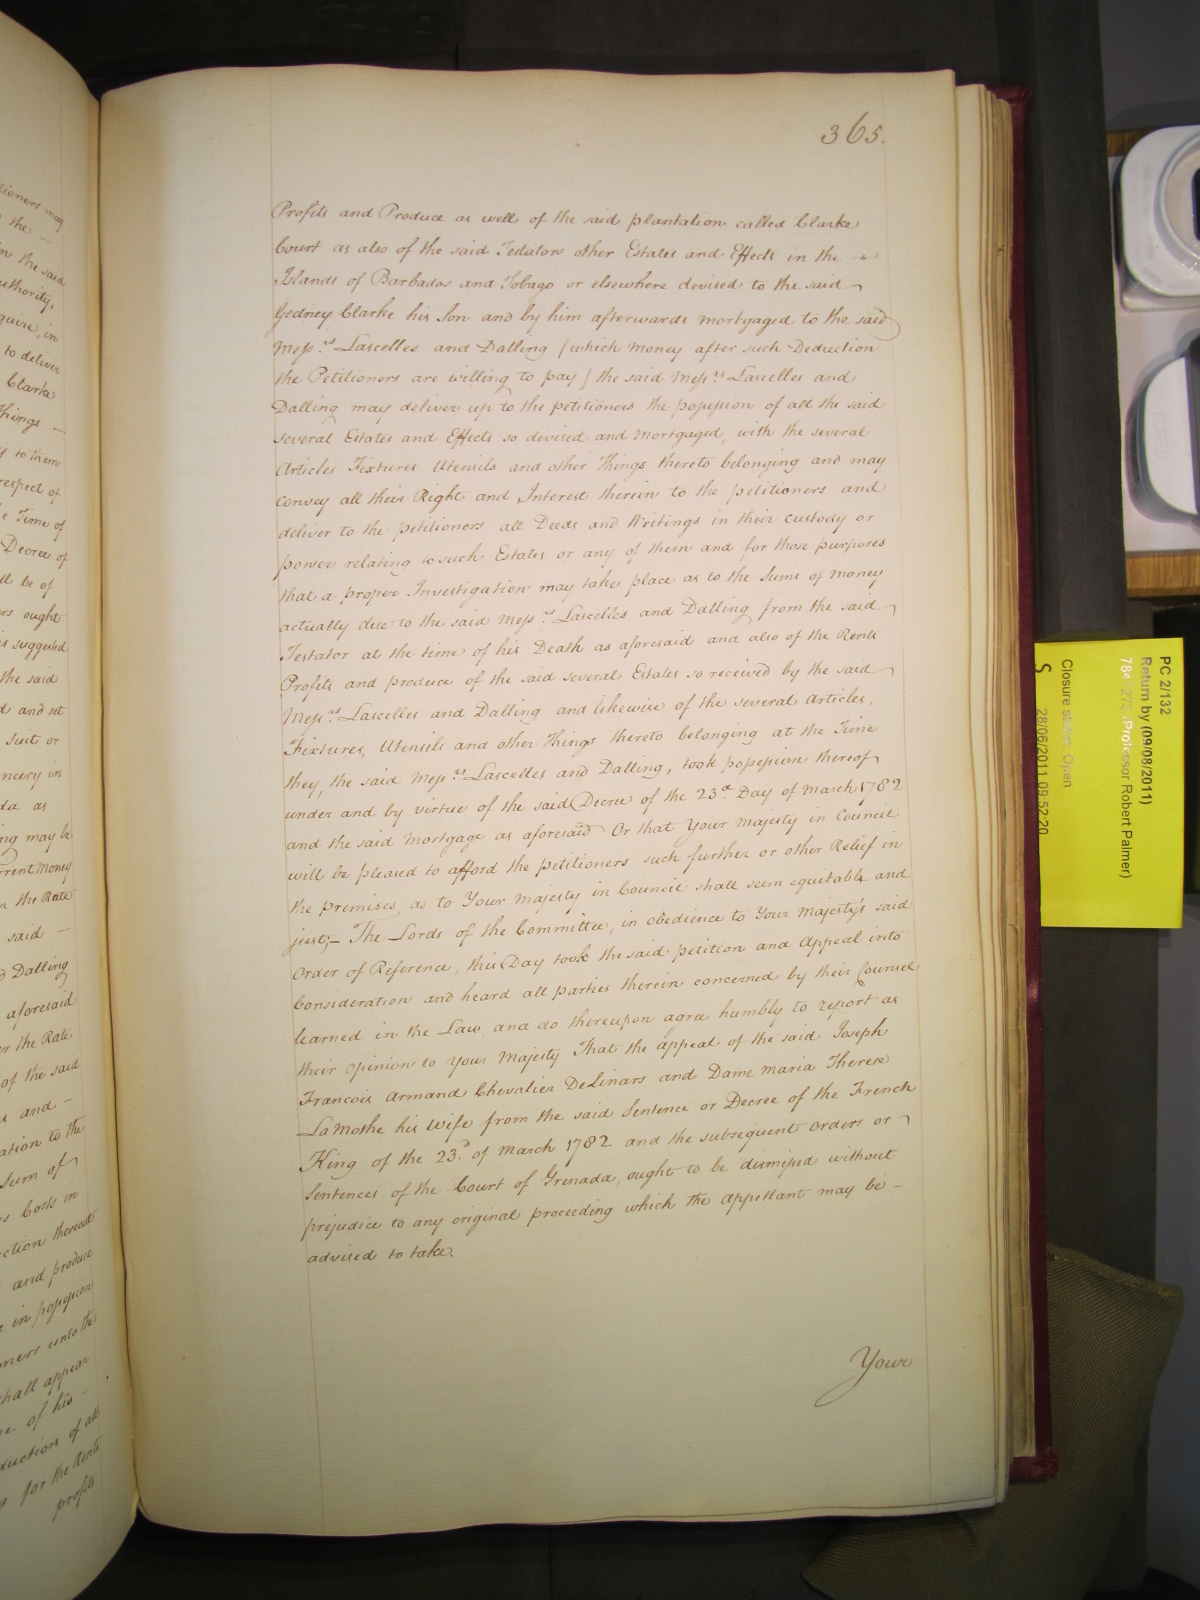 tioners may
the —
on the said
uthority,
quire, in
to deliver
Clarke
Things —
to them
respect of
e Time of
Decree of
ll be of
rs ought
is suggested
the said
d and set
suit or
ncery in
da as
ing may be
rrent Money
n the Rate
said —
Dalling
aforesaid
or the Rate
of the said
s and -
ation to the
Sum of
s Costs in
ction thereof
and produce
e in possession
oners unto the
shall appear
e of his -
duction of all
for the Rents
profits
365.
Profits and Produce as well of the said plantation called Clarke
Court as also of the said Testators other Estates and Effects in the
Islands of Barbados and Tobago or elsewhere devised to the said
Gedney Clarke his Son and by him afterwards mortgaged to the said
Mess.rs Lascelles and Dalling (which money after such Deduction
the Petitioners are willing to pay) the said Mess.rs Lascelles and
Dalling may deliver up to the petitioners the possession of all the said
several Estates and Effects so devised and mortgaged, with the several
Articles Fixtures Utensils and other Things thereto belonging and may
convey all their Right and Interest therein to the petitioners and
deliver to the petitioners all Deeds and Writings in their custody or
power relating to such Estates or any of them and for those purposes
that a proper Investigation may take place as to the Sums of money
actually due to the said Mess.rs Lascelles and Dalling from the said
Testator at the time of his Death as aforesaid and also of the Rents
Profits and produce of the said several Estates so received by the said
Mess.rs Lascelles and Dalling and likewise of the several Articles,
Fixtures, Utensils and other Things thereto belonging at the Time
they, the said Mess.rs Lascelles and Dalling, took possession thereof
under and by virtue of the said Decree of the 23.d Day of March 1782
and the said Mortgage as aforesaid Or that Your Majesty in Council
will be pleased to afford the petitioners such further or other Relief in
the premises, as to Your Majesty in Council shall seem equitable and
just;— The Lords of the Committee, in obedience to Your Majesty's said
Order of Reference, this Day took the said petition and Appeal into
Consideration and heard all parties therein concerned by their Counsel
learned in the Law, and do thereupon agree humbly to report as
their opinion to Your Majesty That the appeal of the said Joseph
Francois Armand Chevalier DeLinars and Dame Maria Therese
LaMothe his Wife from the said Sentence or Decree of the French
King of the 23.d of March 1782 and the subsequent orders or
Sentences of the Court of Grenada, ought to be dismissed without
prejudice to any original proceeding which the appellant may be -
advised to take.
Your
PC 2/132
Return by (09/08/2011)
(Professor Robert Palmer)
Closure status: Open
S
28/06/2011 09:52:20